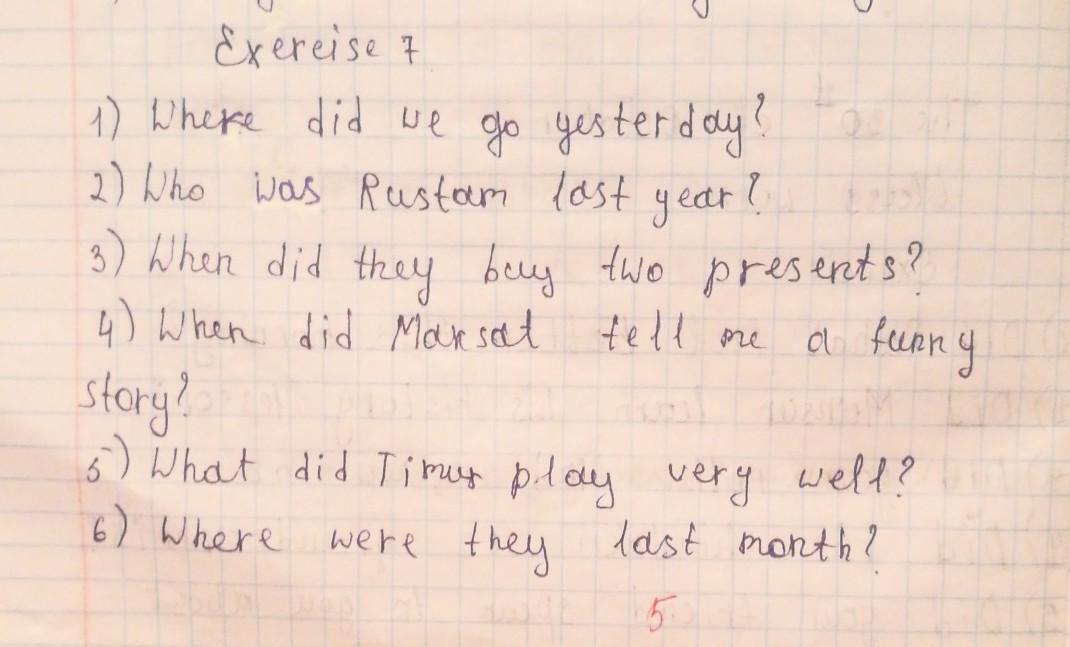 Exereise 7
1) Where did we go yesterday?
2) Who was Rustam last year?
3) When did they buy two presents?
4) When did Marsat tell me a funny
story?
5) What did Timur play very well?
6) Where were they last month?
5